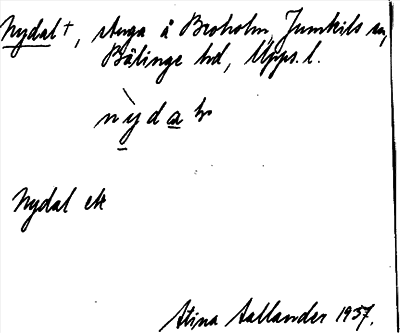 Nydal †, stuga å Broholm, Jumkils sn,
Bälinge hd, Upps. l.
nyda
Nydal ek
Stina Aallander 1937.